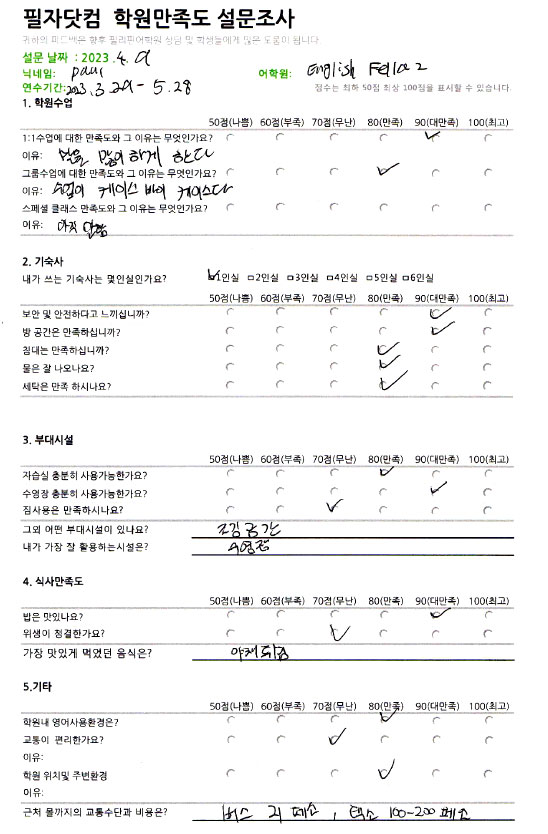 필자닷컴 학원만족도 설문조사
귀하의 피드백은 향후 필리핀어학원 상담 및 학생들에게 많은 도움이 됩니다.
설문 날짜 : 2023.4.9
닉네임: paul 어학원: English Fella 2
연수기간: 2023.3.29 - 5.28 점수는 최하 50점 최상 100점을 표시할 수 있습니다.
1. 학원수업
50점(나쁨) 60점(부족) 70점(무난) 80(만족) 90(대만족) 100(최고)
1:1수업에 대한 만족도와 그 이유는 무엇인가요?
이유: 말을 많이 하게 한다
그룹수업에 대한 만족도와 그 이유는 무엇인가요?
이유: 수업이 케이스 바이 케이스다
스페셜 클래스 만족도와 그 이유는 무엇인가요?
이유: 아직 안함
2. 기숙사
내가 쓰는 기숙사는 몇인실인가요? 1인실 □2인실 □3인실 □4인실 □5인실 □6인실
50점(나쁨) 60점(부족) 70점(무난) 80(만족) 90(대만족) 100(최고)
보안 및 안전하다고 느끼십니까?
방 공간은 만족하십니까?
침대는 만족하십니까?
물은 잘 나오나요?
세탁은 만족 하시나요?
3. 부대시설
50점(나쁨) 60점(부족) 70점(무난) 80(만족) 90(대만족) 100(최고)
자습실 충분히 사용가능한가요?
수영장 충분히 사용가능한가요?
짐사용은 만족하시나요?
그외 어떤 부대시설이 있나요? 조깅 공간
내가 가장 잘 활용하는시설은? 수영장
4. 식사만족도
50점(나쁨) 60점(부족) 70점(무난) 80(만족) 90(대만족) 100(최고)
밥은 맛있나요?
위생이 청결한가요?
가장 맛있게 먹었던 음식은? 야채튀김
5.기타
50점(나쁨) 60점(부족) 70점(무난) 80(만족) 90(대만족) 100(최고)
학원내 영어사용환경은?
교통이 편리한가요?
이유:
학원 위치및 주변환경
이유:
근처 몰까지의 교통수단과 비용은? 버스 페소, 택스 100-200 페소